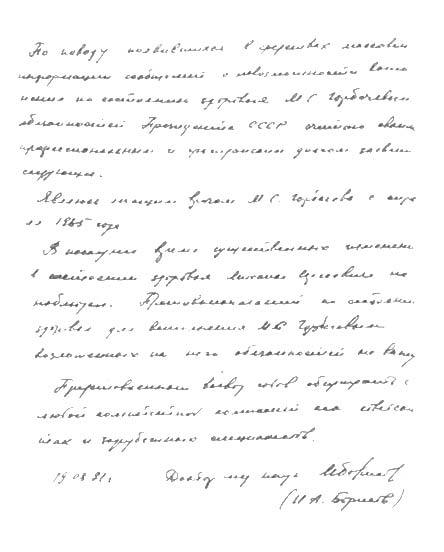 По поводу появившихся в средствах массовой
информации сообщений о невозможности выпо
нения по состоянию здоровья М.С. Горбачевым
обязанностей Президента СССР считаю своим
профессиональным и гражданским долгом заявить
следующее.
Являюсь лечащим врачом М.С. Горбачева с апре
ля 1985 года
В настоящее время существенных изменени
в состоянии здоровья Михаила Сергеевича не
наблюдаю. Противопоказаний по состоянию
здоровья для выполнения М.С. Горбачевым
возложенных на него обязанностей не вижу
готов обсуждать с
любой компетентной комиссией из советск
их и зарубежных специалистов.
19 08 91г Доктор мед наук
(И А. Борисов)